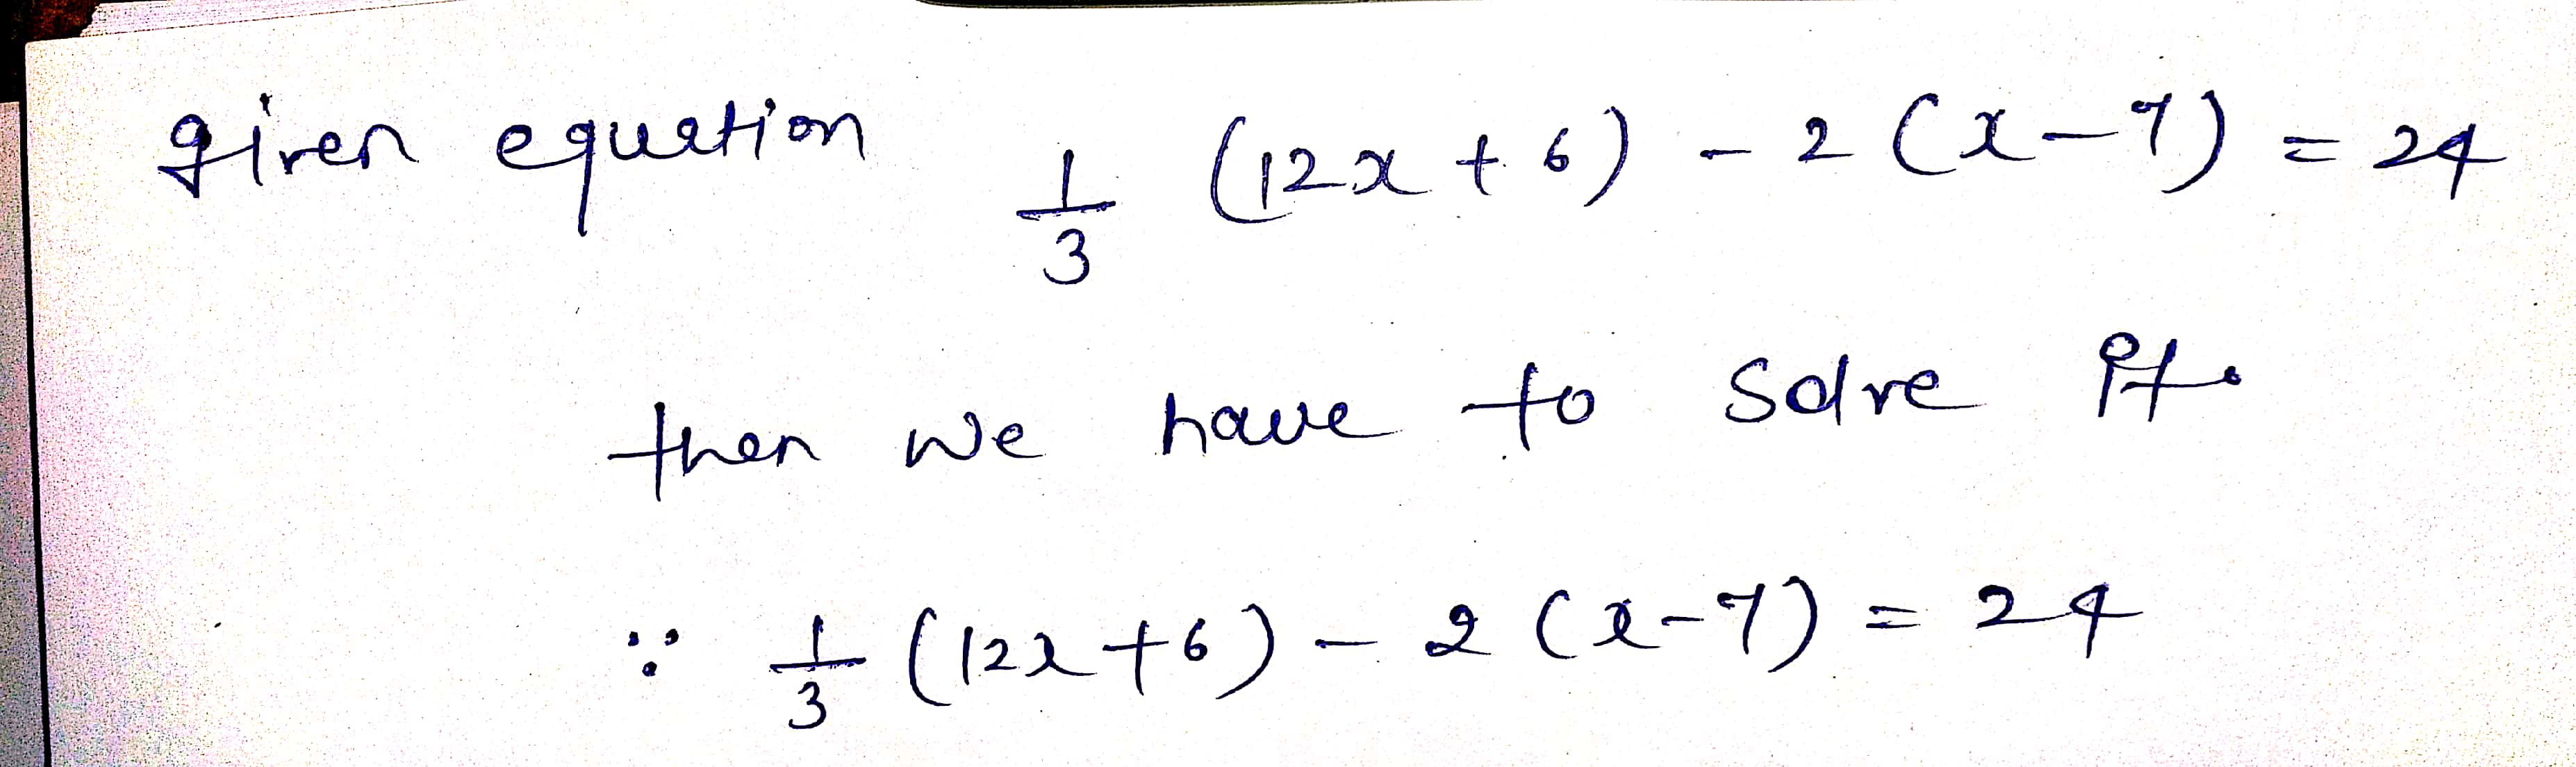 given equation 1/3 (12x + 6) - 2 (x - 7) = 24
then we have to solve it.
∵ 1/3 (12x + 6) - 2 (x - 7) = 24